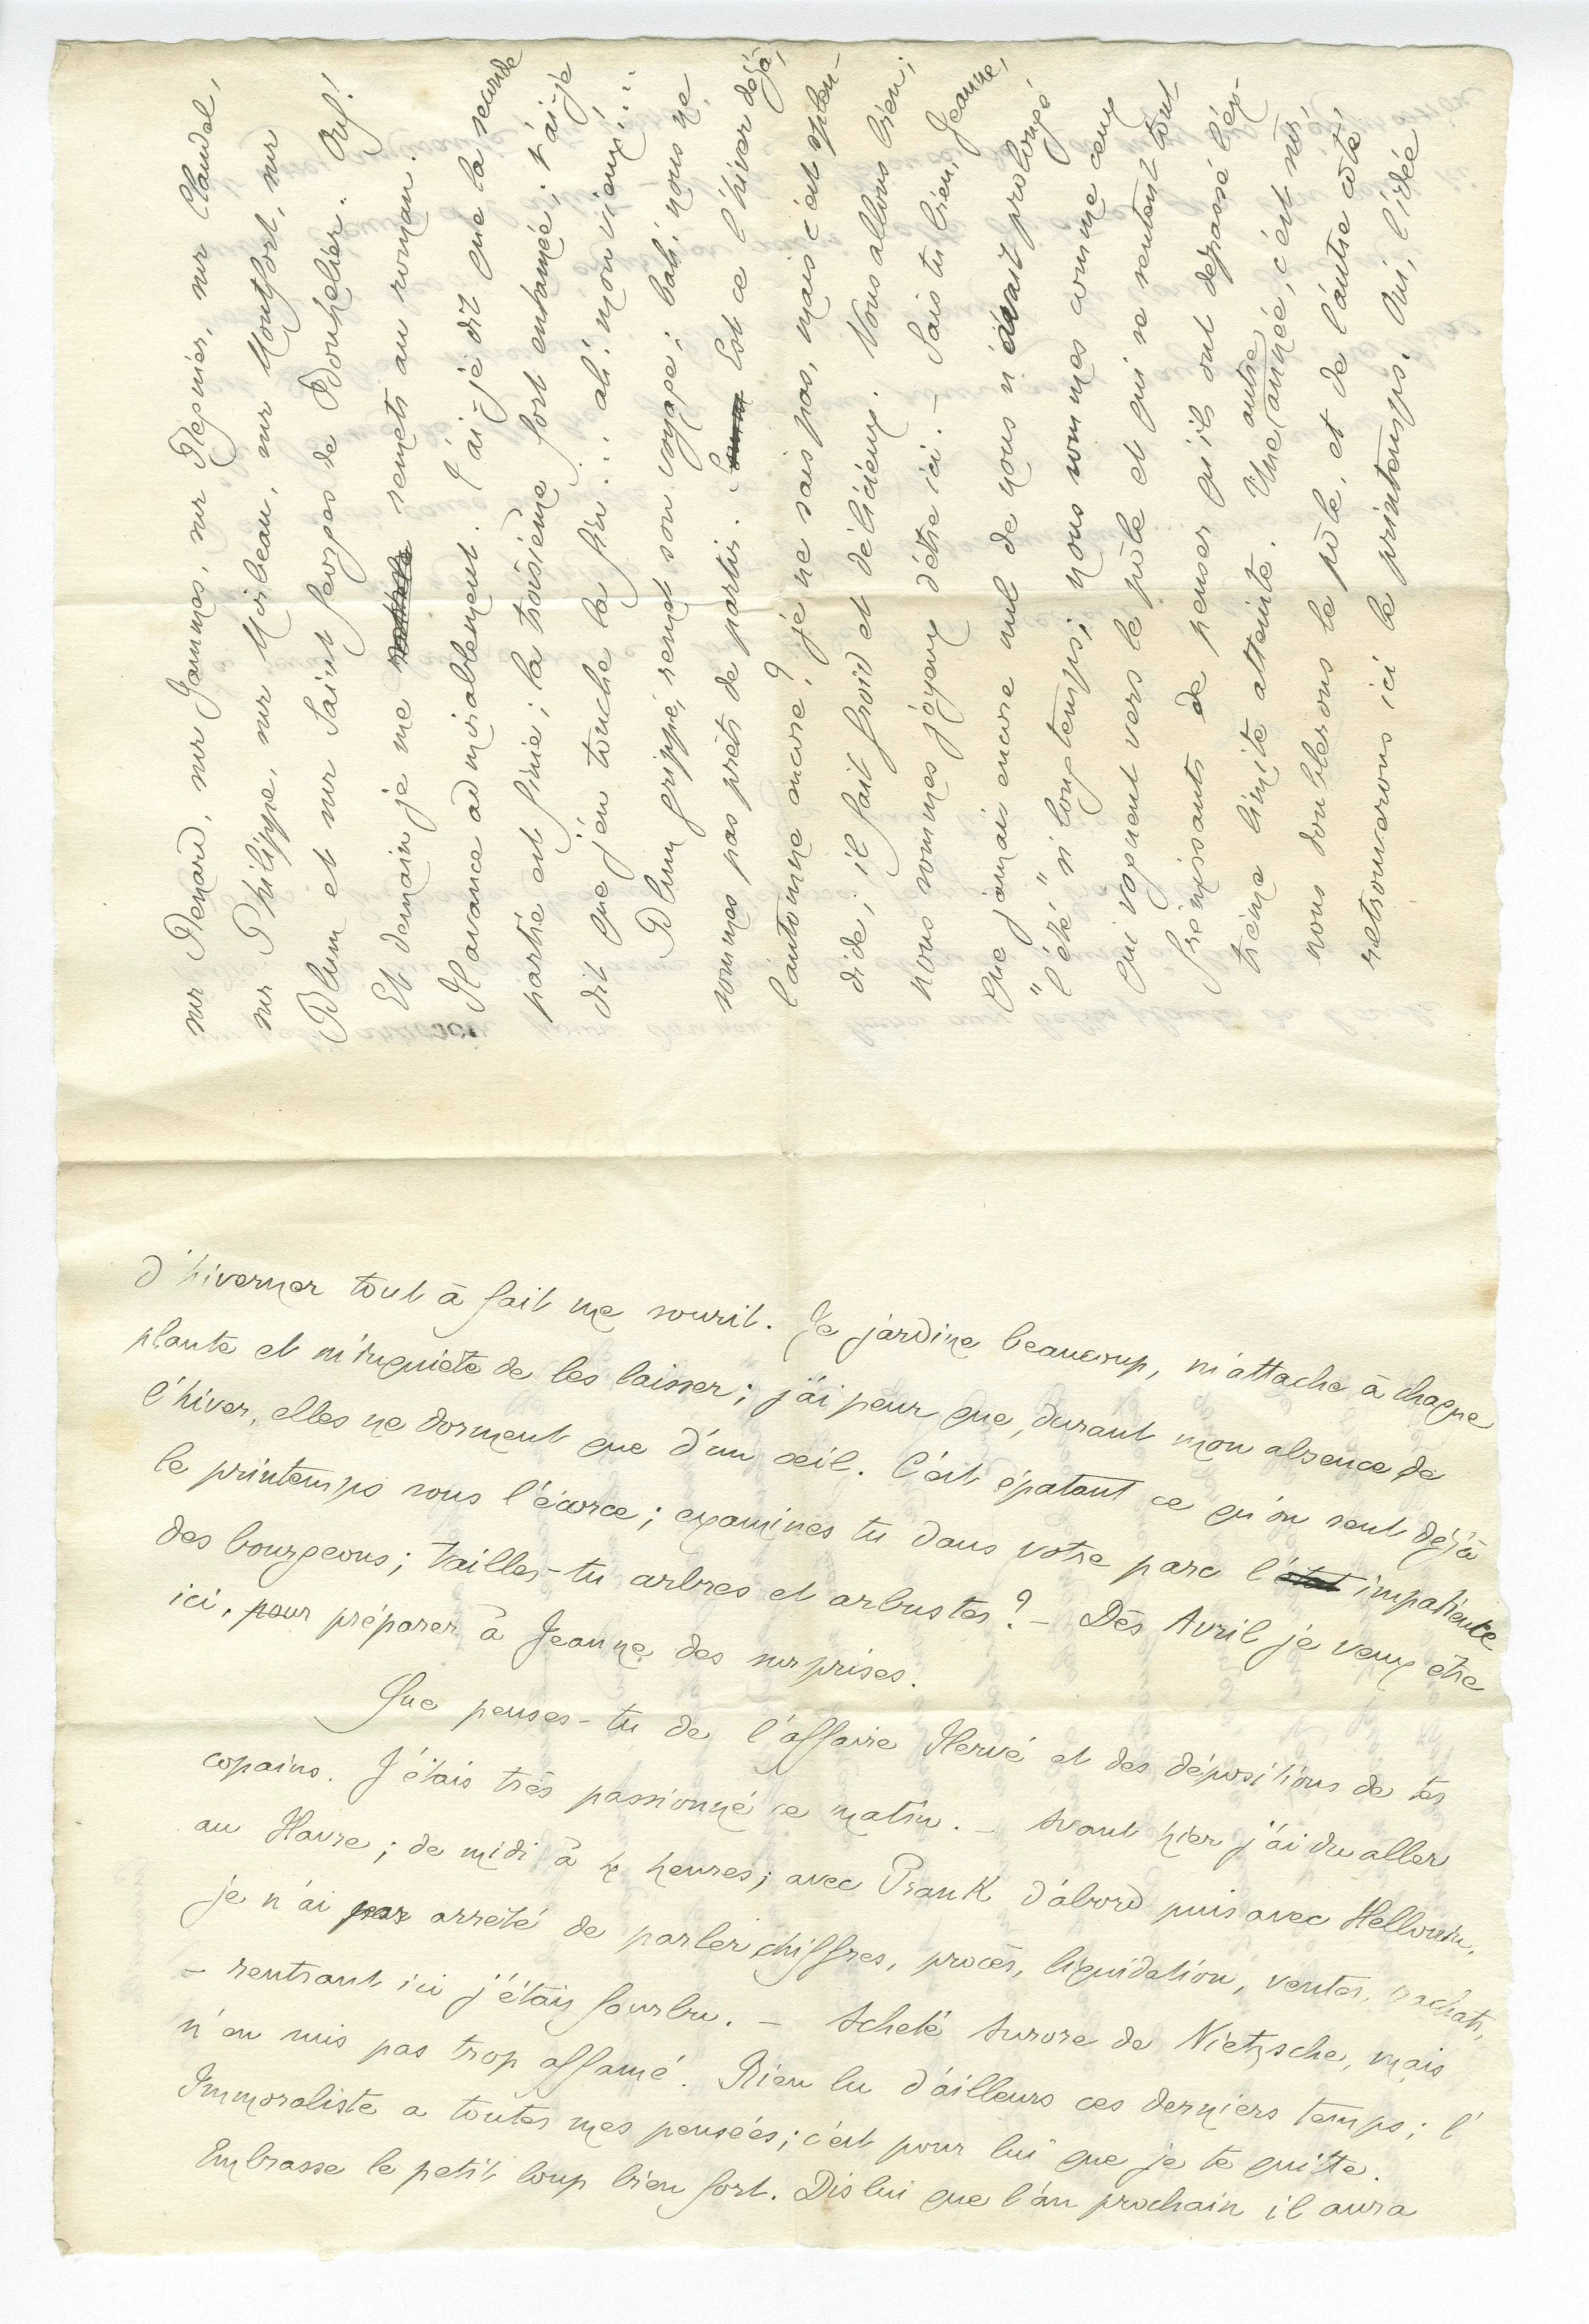 sur Renard, sur Jammes, sur Regnier, sur Claudel,
sur Philippe, sur Mirbeau, sur Montfort, sur
Blum et sur Saint Georges de Bouhélier. Ouf!
Et demain je me remets au roman.
Il avance admirablement. T'ai-je dit que la seconde
partie est finie; la troisième fort entamée; t'ai-je
dit que j'en touche la fin... ah! mon vieux!...
Blum grippé, remet son voyage; bah! nous ne
sommes pas prêts de partir. Est ce l'hiver déjà,
l'automne encore? je ne sais pas, mais c'est splen-
dide; il fait froid et délicieux. Nous allons bien;
nous sommes joyeux d'être ici. - Sais tu bien, Jeanne,
que jamais encore nul de nous n'avait prolongé
"l'été" si longtemps; nous sommes comme ceux
qui voguent vers le pôle et qui se sentent tout
frémissants de penser qu'ils ont dépassé l'ex-
trême limite atteinte. Une autre année, c'est sûr
nous doublerons le pôle, et de l'autre côté
retrouverons ici le printemps. Oui, l'idée
d'hiverner tout à fait me sourit. Je jardine beaucoup, m'attache à chaque
plante et m'inquiète de les laisser; j'ai peur que, durant mon absence de
l'hiver, elles ne dorment que d'un œil. C'est épatant ce qu'on sent déjà
le printemps sous l'écorce; examines tu dans votre parc l'impatience
des bourgeons; tailles-tu arbres et arbustes? - Dès Avril je veux être
ici, pour préparer à Jeanne des surprises.
Que penses-tu de l'affaire Hervé et des dépositions de tes
copains. J'étais très passionné ce matin. - Avant hier j'ai du aller
au Havre; de midi à 4 heures; avec Frank d'abord puis avec Hellouin,
je n'ai pas arrêté de parler chiffres, procès, liquidation, ventes, rachats,
- rentrant ici j'étais fourbu. - Acheté Aurore de Nietzsche, mais
n'en suis pas trop affamé. Rien lu d'ailleurs ces derniers temps; l'
Immoraliste a toutes mes pensées; c'est pour lui que je te quitte.
Embrasse le petit loup bien fort. Dis lui que l'an prochain il aura